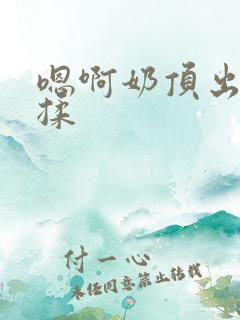 嗯啊奶頂出
揉
付一心
未经同意禁止转载